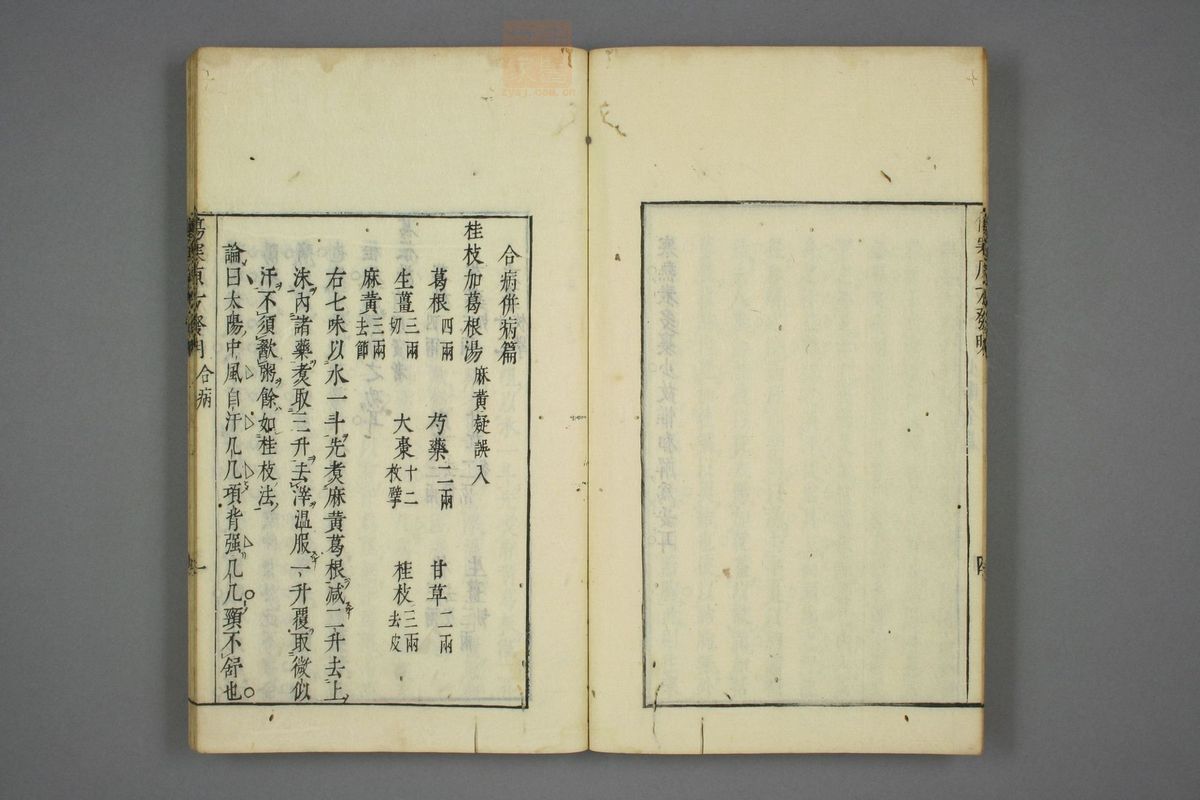 合病併病篇
桂枝加葛根湯 麻黄疑誤入
葛根四兩 芍藥二兩 甘草二兩
生薑三兩切 大棗十二枚擘 桂枝三兩去皮
麻黄三兩去節
右七味以水一斗先煑麻黄葛根減二升去上
沫內諸藥煑取三升去滓溫服一升覆取微似
汗不須歠粥餘如桂枝法
論曰太陽中風自汗几几項背强几几頸不舒也
合病
一
zysj.com.cn